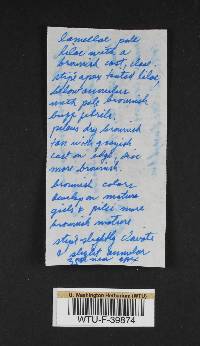 lamellae pale
lilac with a
brownish cast, close.
stipe apex tinted lilac,
below annulus
with pale brownish
buff fibrils.
pileus dry brownish
tan with grayish
cast on edge, disc
more brownish.
brownish colors
develop on mature
gills & pilei more
brownish mature
stipe slightly clavate
c slight annular
zone near apex
U. Washington Herbarium (WTU)
WTU-F-39874